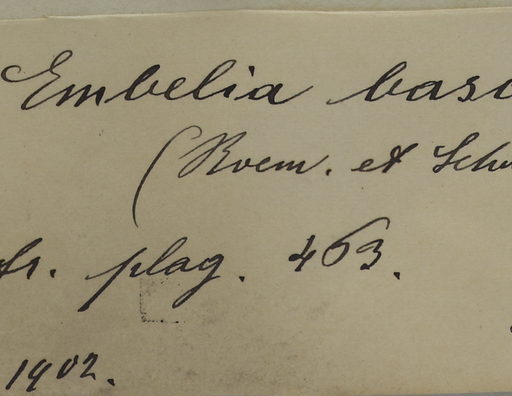 Embelia basa
(Roem. et Schu
fr. plag. 463.
1902.